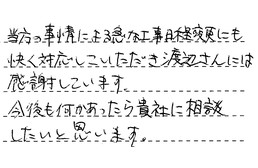 当方の事情による急な工事日程変更にも
快く対応していただき渡辺さんには
感謝しています。
今後も何かあったら貴社に相談
したいと思います。